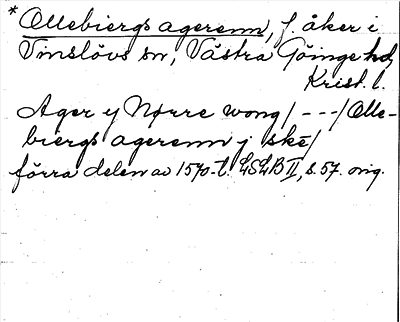 * Ollebiergs agerenn, f. åker i
Vinslövs sn, Västra Göinge hd,
Krist. l.
Ager y Nørre wong / - - - / Olle-
biergs agerenn j ske /
förra delen av 1570-t. LSLB II, s. 57. orig.